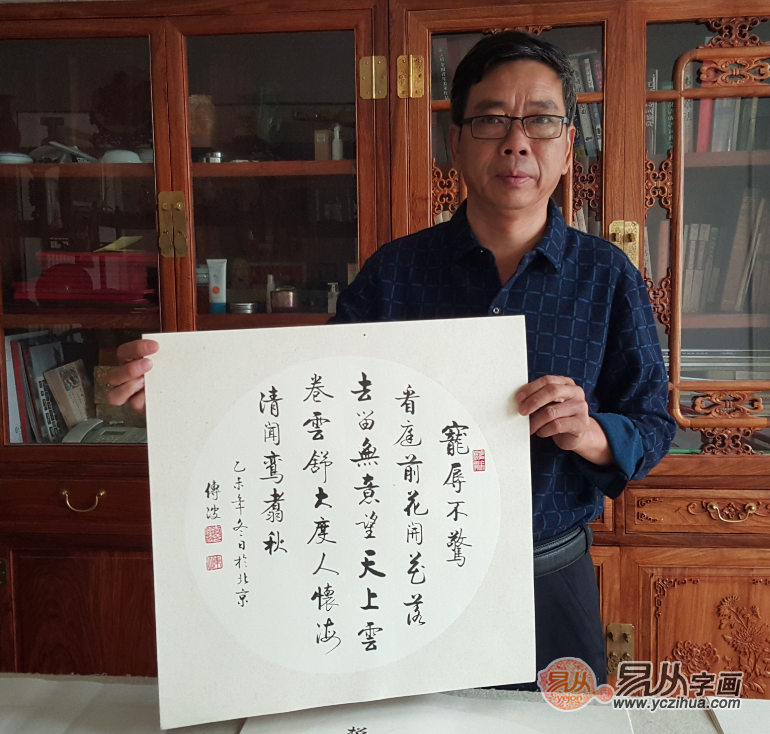 寵辱不驚
看庭前花開花落
去留無意望天上雲
卷雲舒大度人懷海
清聞鸞翥秋
乙未年冬日於北京
傳波
易从
易从字画
www.yczihua.com